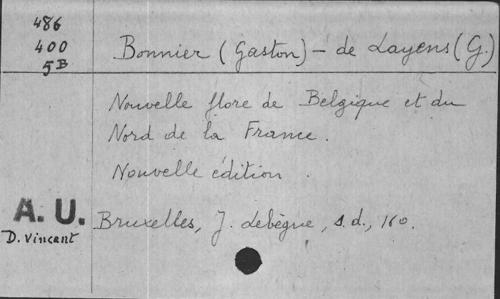 486
400
5B
Bonnier (Gaston) – de Layens (G.)
Nouvelle flore de Belgique et du
Nord de la France.
Nouvelle édition.
A. U.
D. Vincent
Bruxelles, J. Lebègue, s.d., 16o.